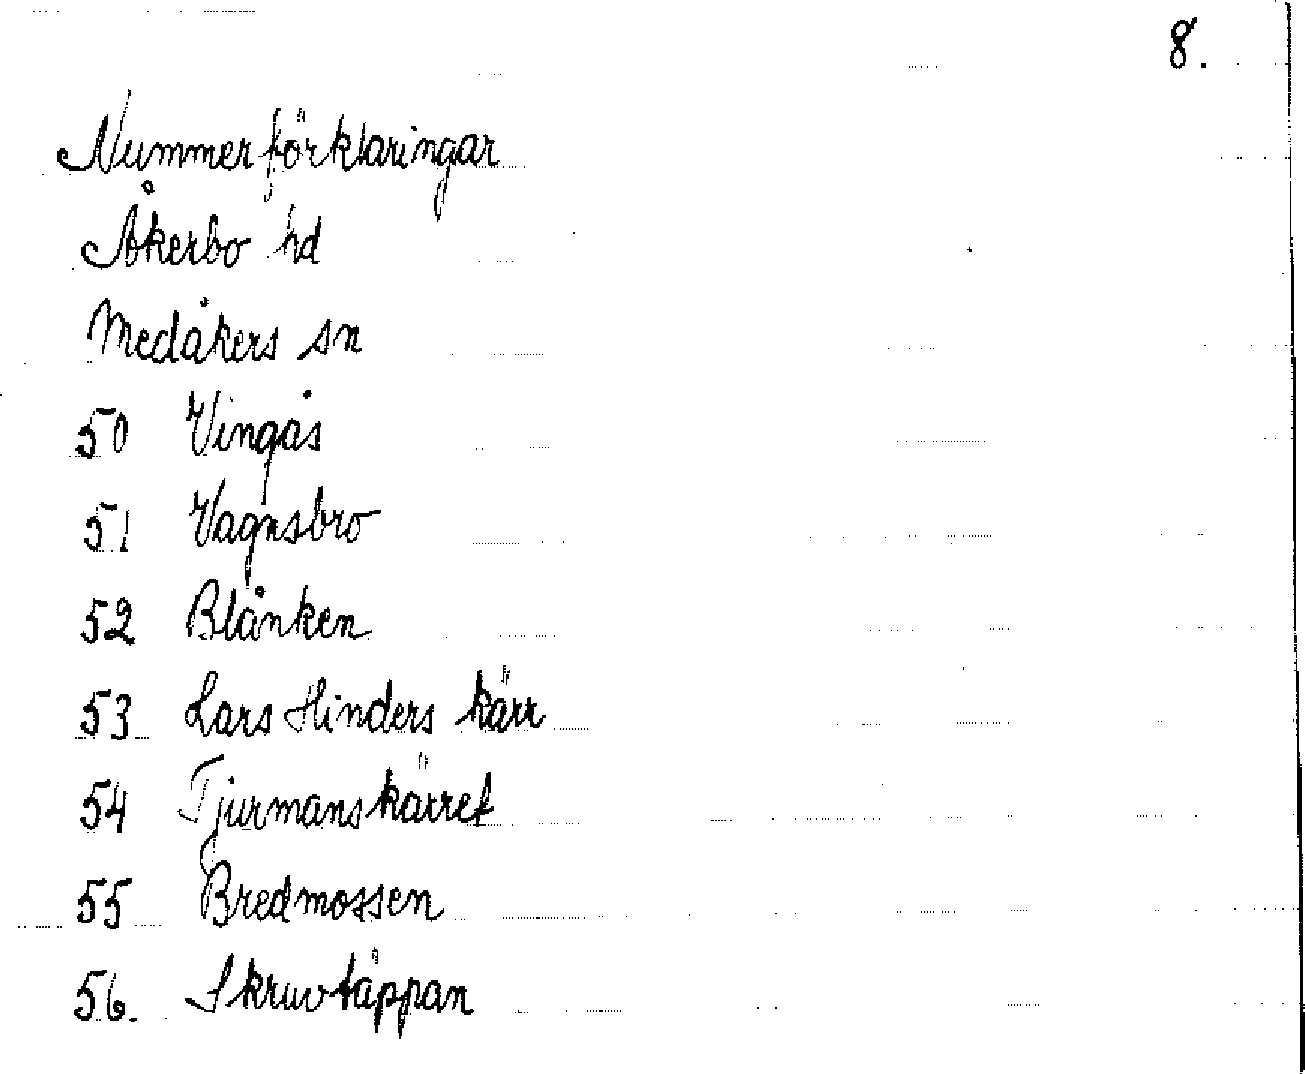 8.
Nummerförklaringar
Åkerbo hd
Medåkers sn
50 Vingås
51 Vagnsbro
52 Blånken
53 Lars Hinders kärr
54 Tjurmanskärret
55 Bredmossen
56. Skruvtäppan